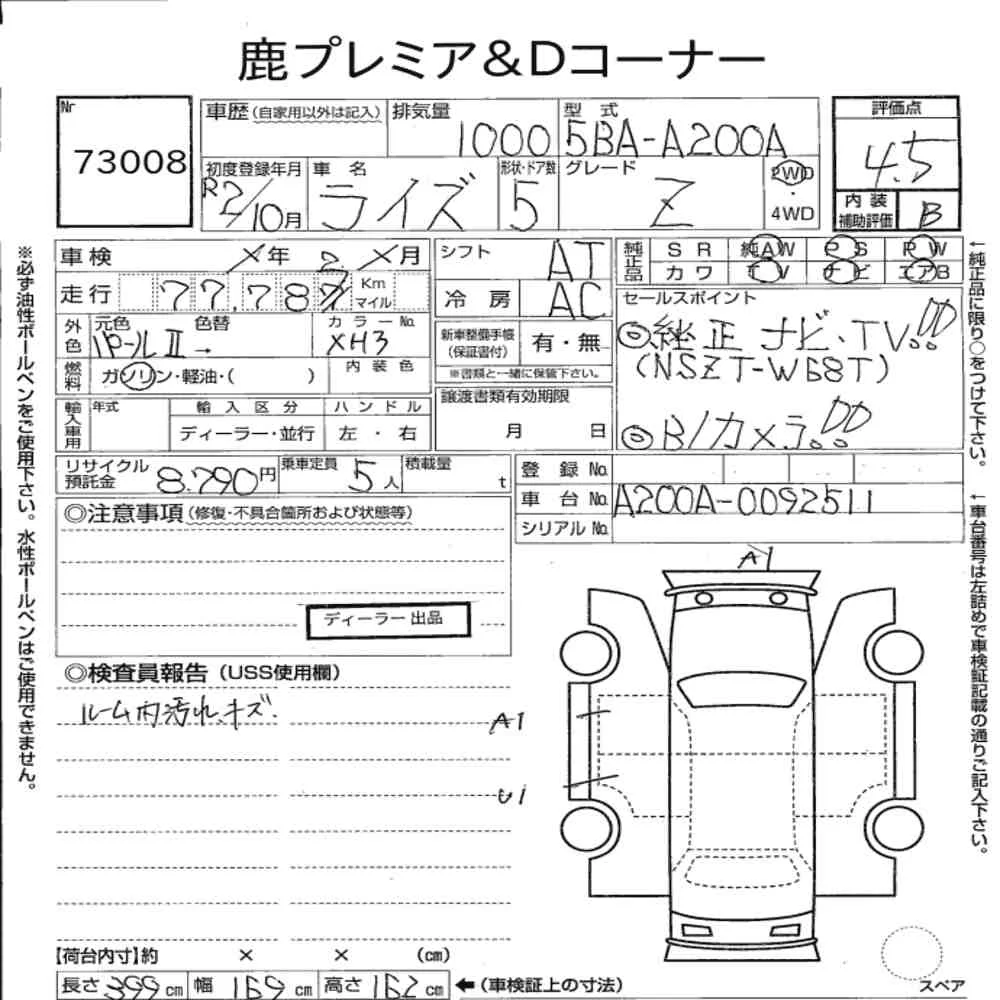 鹿プレミア&Dコーナー
Nr
73008
車歴(自家用以外は記入)
排気量
1000
型 式
5BA-A200A
初度登録年月
R2/10月
車 名
ライズ
形状・ドア数
5
グレード
Z
2WD
・
4WD
評価点
4.5
内 装
補助評価
B
車検
×年 ×月
走行
77,787
Km
マイル
外色
元色
パールⅡ→
色替
カラーNo.
XH3
燃料
ガソリン・軽油・( )
内 装 色
輸入車用
年式
輸 入 区 分
ディーラー・並行
ハ ン ド ル
左 ・ 右
シフト
AT
冷 房
AC
新車整備手帳
(保証書付)
有・無
※書類と一緒に保管下さい。
譲渡書類有効期限
月 日
純正品
S R
純AW
P S
P W
カ ワ
T V
ナ ビ
エアB
セールスポイント
◎純正 ナビ・TV!!
(NSZT-W68T)
◎B/カメラ!!
リサイクル
預託金
8.790円
乗車定員
5人
積載量
t
登 録 No.
車 台 No.
A200A-0092511
シリアル No.
◎注意事項(修復・不具合箇所および状態等)
ディーラー 出品
◎検査員報告(USS使用欄)
ルーム内汚れ、キズ.
A1
A1
U1
【荷台内寸】約 × × (cm)
長さ 399 cm
幅 169 cm
高さ 162 cm
←(車検証上の寸法)
スペア
※必ず油性ボールペンをご使用下さい。水性ボールペンはご使用できません。
←純正品に限り○をつけて下さい。
←車台番号は左詰めで車検証記載の通りご記入下さい。